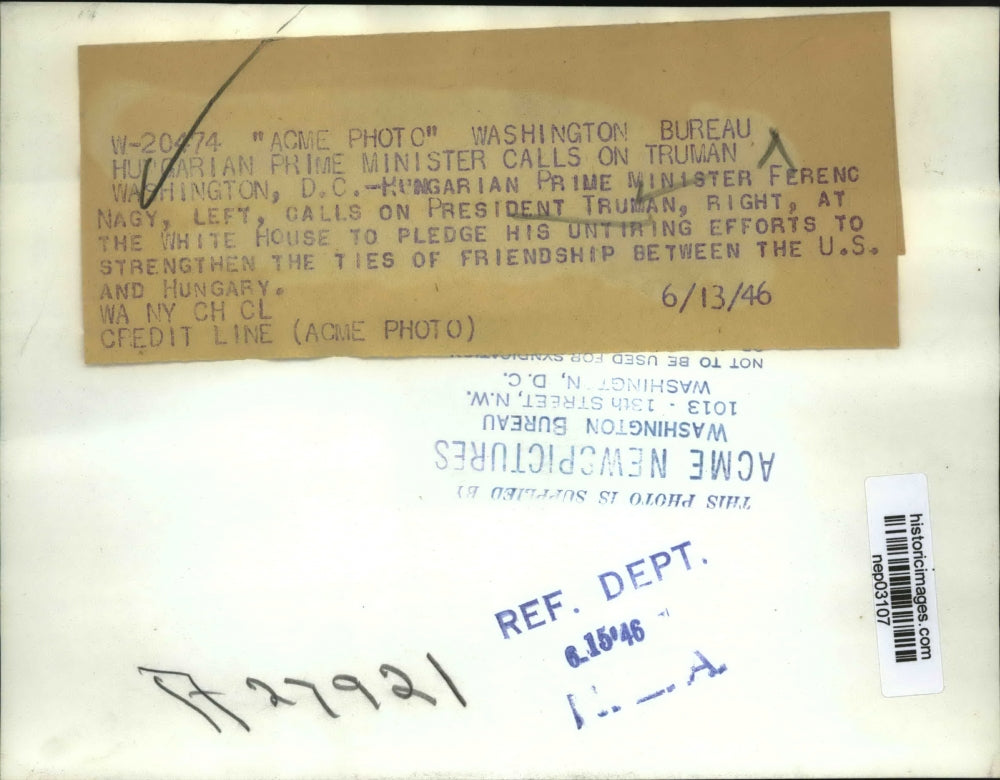 W-20474 "ACME PHOTO" WASHINGTON BUREAU
HUNGARIAN PRIME MINISTER CALLS ON TRUMAN
WASHINGTON, D.C.-HUNGARIAN PRIME MINISTER FERENC
NAGY, LEFT, CALLS ON PRESIDENT TRUMAN, RIGHT, AT
THE WHITE HOUSE TO PLEDGE HIS UNTIRING EFFORTS TO
STRENGTHEN THE TIES OF FRIENDSHIP BETWEEN THE U.S.
AND HUNGARY.
WA NY CH CL
6/13/46
CREDIT LINE (ACME PHOTO)
THIS PHOTO IS SUPPLIED BY
ACME NEWSPICTURES
WASHINGTON BUREAU
1013 - 13th STREET, N.W.
WASHINGTON, D.C.
NOT TO BE USED FOR SYNDICATION
REF. DEPT.
6.15'46
27921
historicimages.com
nep03107